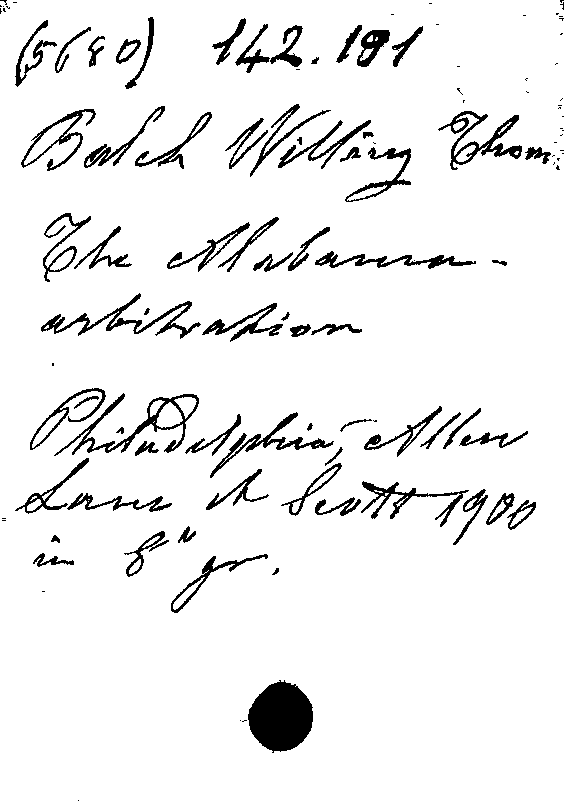 (5680) 142.191
Balch Willing Thom.
The Alabama-
arbitration
Philadelphia, Allen
Lane et Scott 1900
in 8° gr.